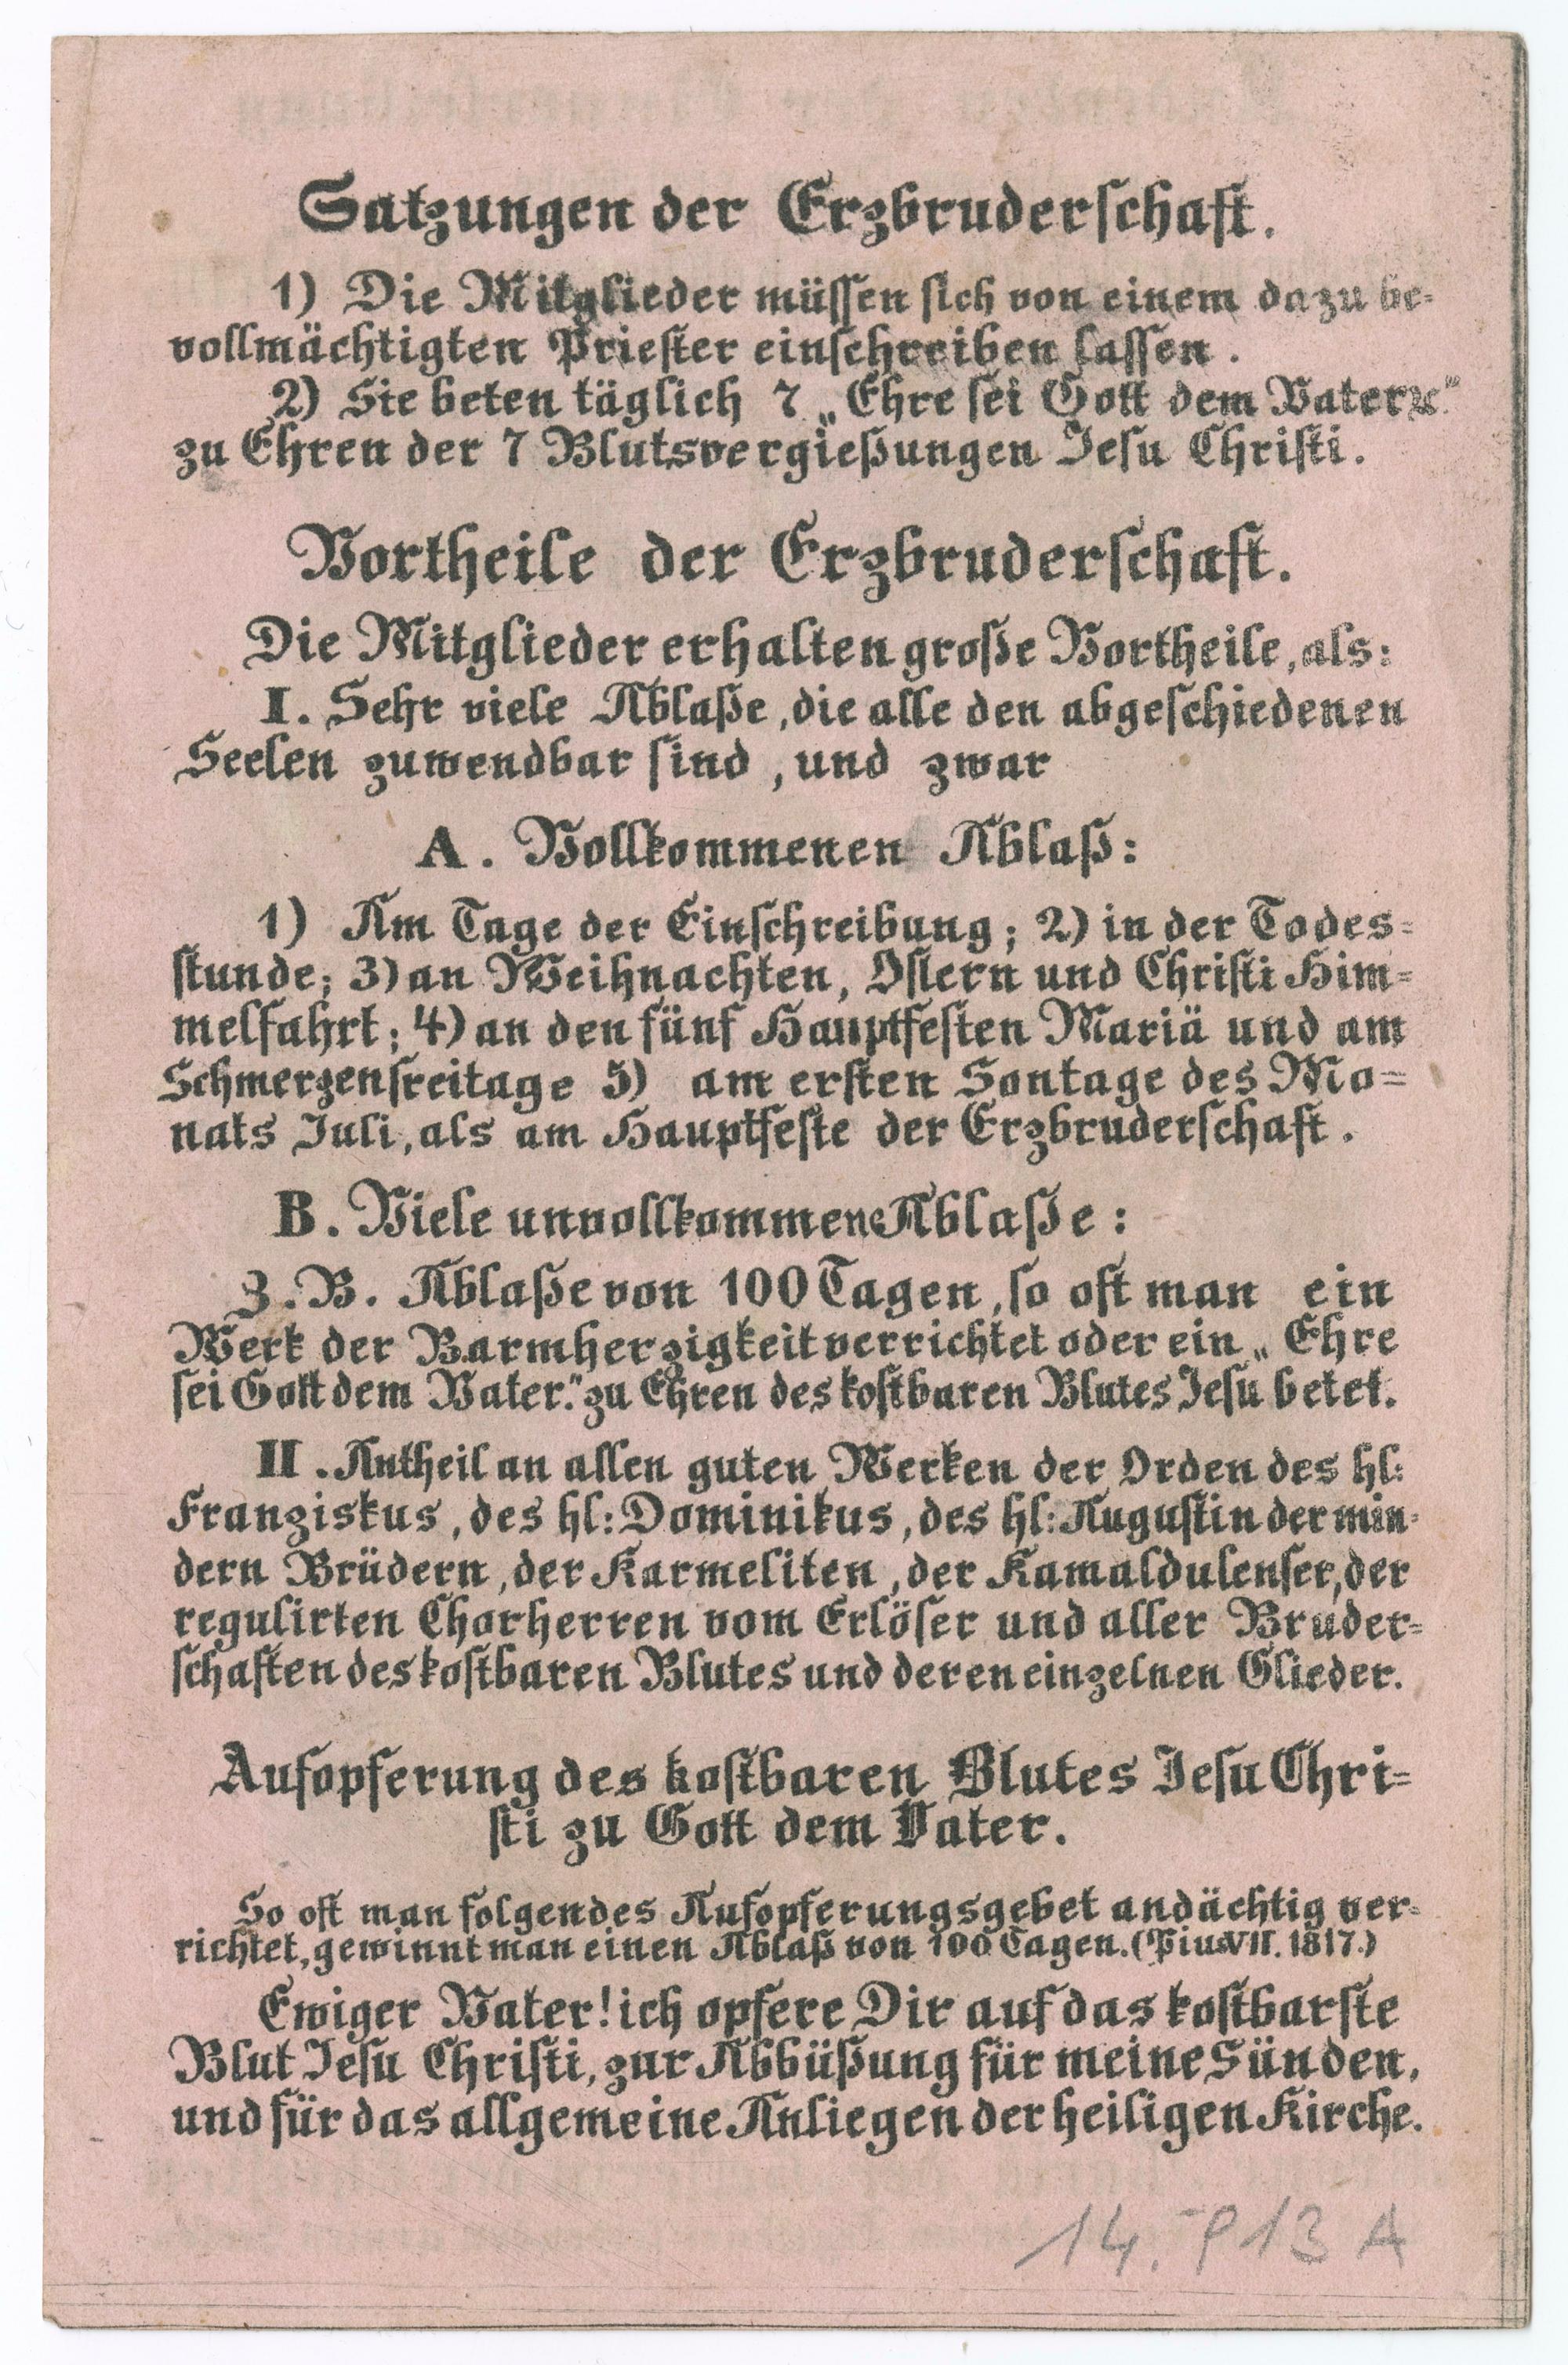 Satzungen der Erzbruderschaft.
1) Die Mitglieder müssen sich von einem dazu be-
vollmächtigten Priester einschreiben lassen.
2) Sie beten täglich 7 „Ehre sei Gott dem Vater ꝛc."
zu Ehren der 7 Blutsvergießungen Jesu Christi.
Vortheile der Erzbruderschaft.
Die Mitglieder erhalten große Vortheile, als:
I. Sehr viele Ablaße, die alle den abgeschiedenen
Seelen zuwendbar sind, und zwar
A. Vollkommenen Ablaß:
1) Am Tage der Einschreibung; 2) in der Todes-
stunde; 3) an Weihnachten, Ostern und Christi Him-
melfahrt; 4) an den fünf Hauptfesten Mariä und am
Schmerzensfreitage 5) am ersten Sontage des Mo-
nats Juli, als am Hauptfeste der Erzbruderschaft.
B. Viele unvollkommene Ablaße:
Z. B. Ablaße von 100 Tagen, so oft man ein
Werk der Barmherzigkeit verrichtet oder ein „Ehre
sei Gott dem Vater." zu Ehren des kostbaren Blutes Jesu betet.
II. Antheil an allen guten Werken der Orden des hl:
Franziskus, des hl: Dominikus, des hl: Augustin der min-
dern Brüdern, der Karmeliten, der Kamaldulenser, der
regulirten Chorherren vom Erlöser und aller Bruder-
schaften des kostbaren Blutes und deren einzelnen Glieder.
Aufopferung des kostbaren Blutes Jesu Chri-
sti zu Gott dem Vater.
So oft man folgendes Aufopferungsgebet andächtig ver-
richtet, gewinnt man einen Ablaß von 100 Tagen. (Pius VII. 1817.)
Ewiger Vater! ich opfere Dir auf das kostbarste
Blut Jesu Christi, zur Abbüßung für meine Sünden,
und für das allgemeine Anliegen der heiligen Kirche.
14. P 13 A